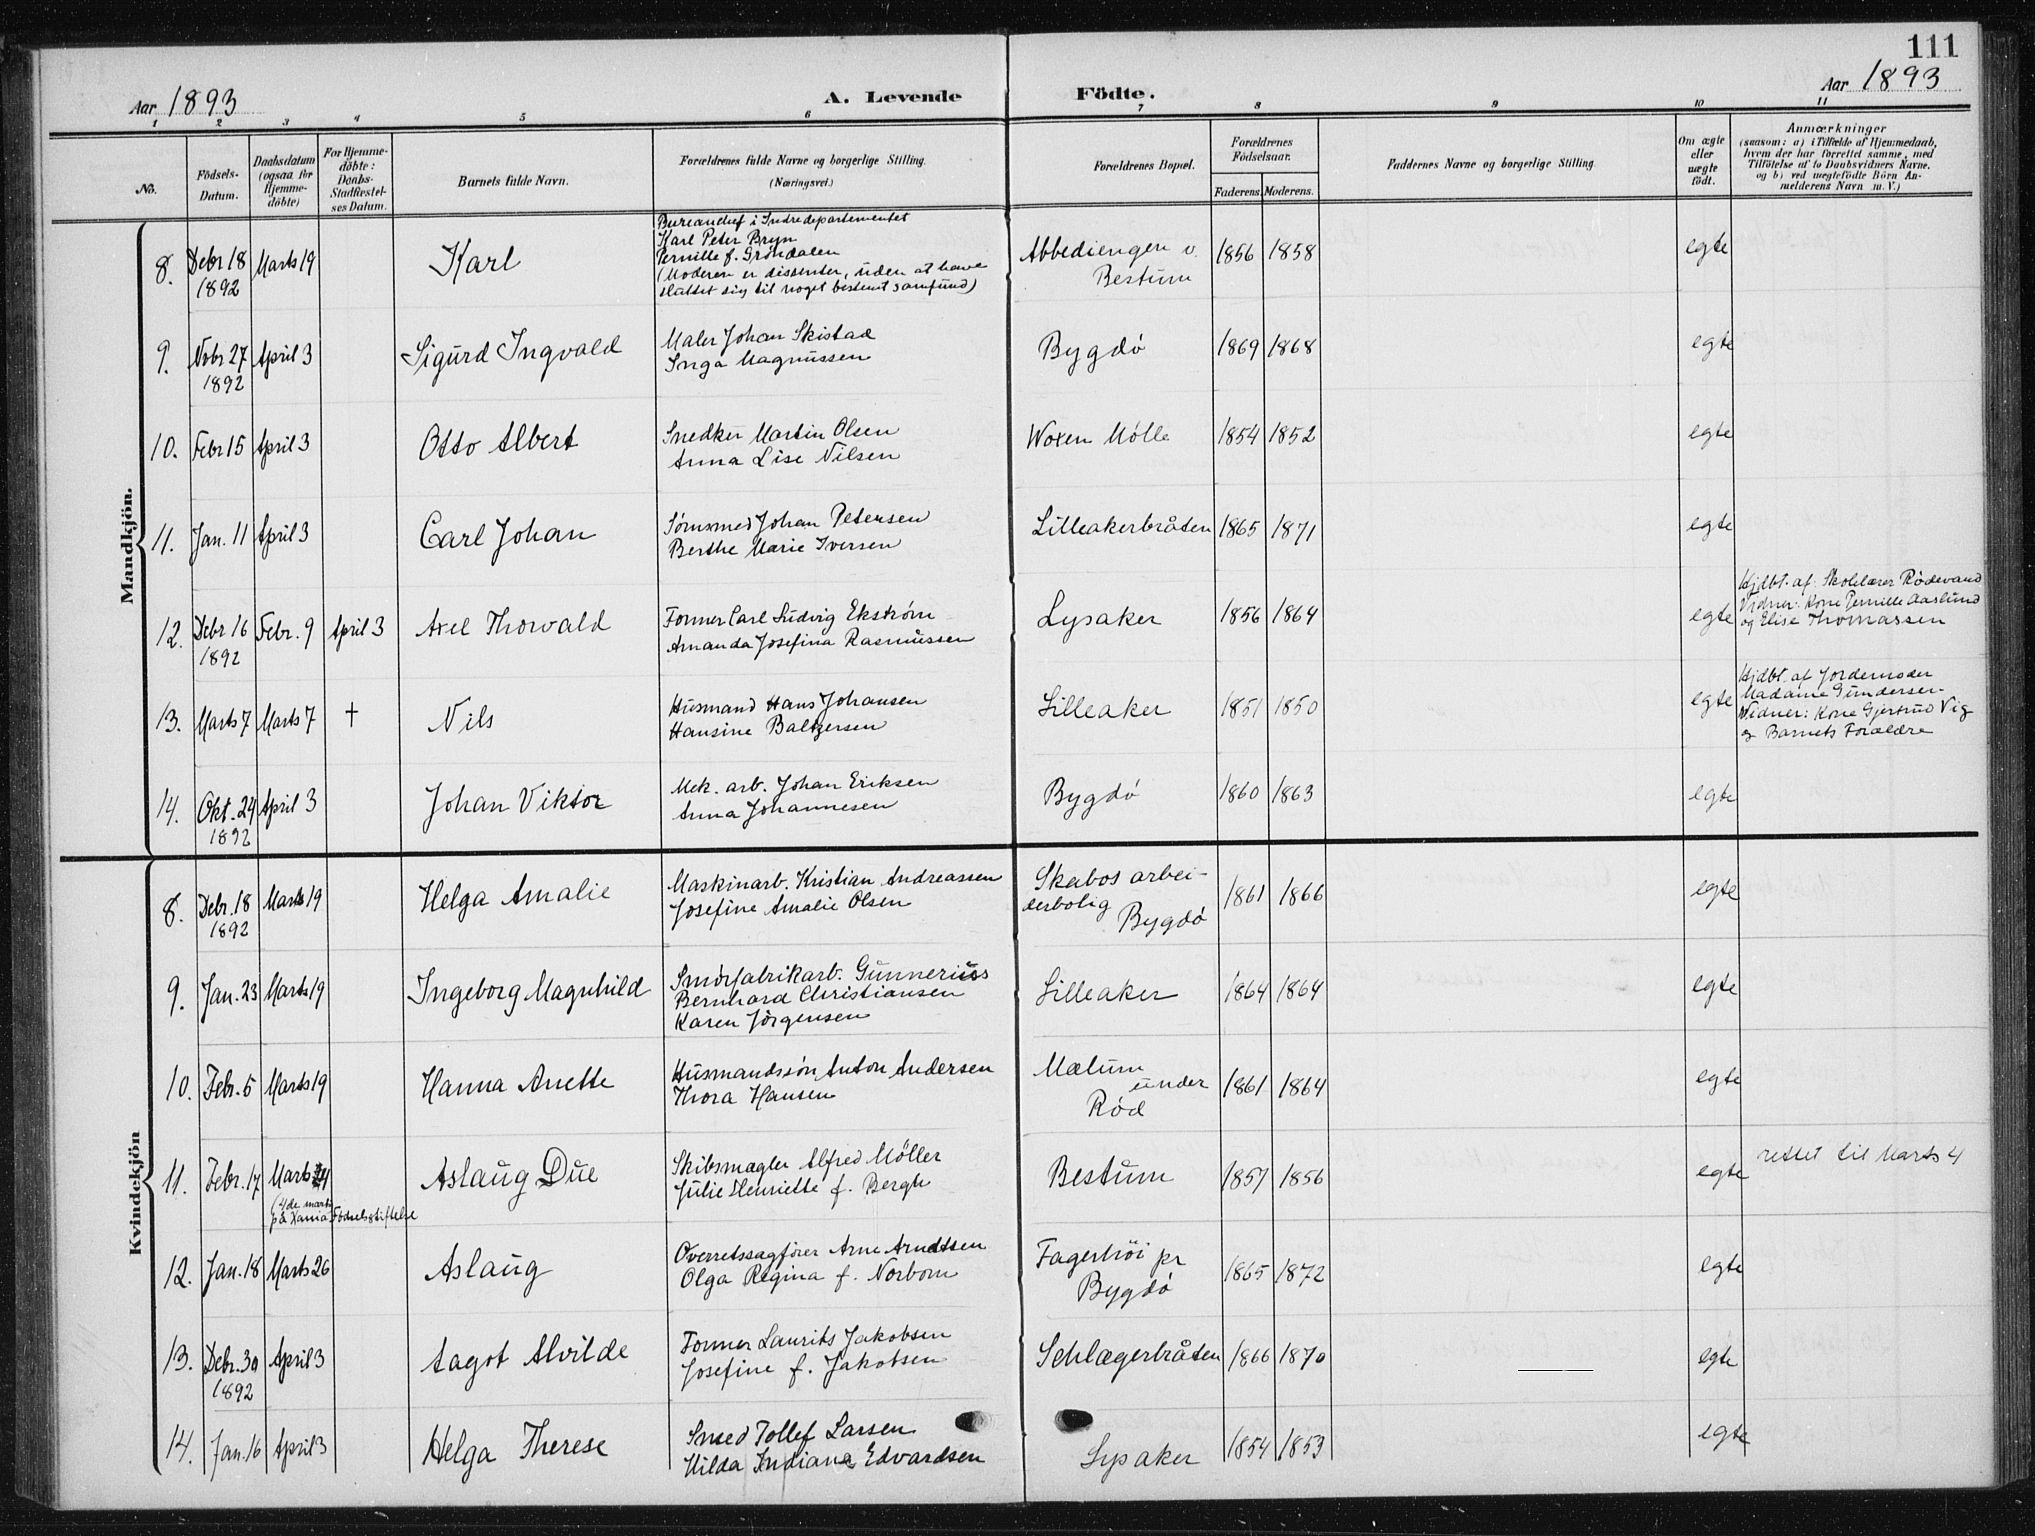 111
Aar 1893 A. Levende Födte. Aar 1893
1 2 3 4 5 6 7 8 9 10 11
No.
Födsels-
Datum.
Daabsdatum
(ogsaa for
Hjemme-
döbte)
For Hjemme-
döbte:
Daabs-
Stadfæstel-
ses Datum.
Barnets fulde Navn.
Forældrenes fulde Navne og borgerlige Stilling.
(Næringsvei.)
Forældrenes Bopæl.
Forældrenes
Födselsaar.
Faderens. Moderens.
Faddernes Navne og borgerlige Stilling
Om ægte
eller
uægte
födt.
Anmærkninger
(saasom: a) i Tilfælde af Hjemmedaab,
hvem der har forrettet samme, med
Tilföielse af to Daabsvidners Navne.
og b) ved uægtefödte Börn An-
melderens Navn m. V.)
Mandkjön.
8. Debr 18 Marts 19 Karl
1892
Bureauchef i Indredepartementet
Karl Peter Bryn
Pernille f. Gröndalen
(Moderen er dissenter, uden at have
sluttet sig til noget bestemt samfund)
Abbediengen v.
Bestum
1856 1858 egte
9. Novbr 27 April 3 Sigurd Ingvald
1892
Maler Johan Skistad
Inga Magnussen
Bygdö 1869 1868 egte
10. Febr 15 April 3 Otto Albert
Snedker Martin Olsen
Anna Lise Nilsen
Woxen Mölle 1854 1852 egte
11. Jan. 11 April 3 Carl Johan
Sömsmed Johan Petersen
Berthe Marie Iversen
Lilleakerbråten 1865 1871 egte
12. Debr 16 Febr. 9 April 3 Axel Thorvald
1892
Former Carl Ludvig Ekström
Amanda Josefina Rasmussen
Lysaker 1856 1864 egte
Hjdbt. af Skolelærer Rödevand
Vidner: Kone Pernille Aaslund
og Elise Thomassen
13. Marts 7 Marts 7 † Nils
Husmand Hans Johansen
Hansine Baltzersen
Lilleaker 1851 1850 egte
Hjdbt. af Jordemoder
Madame Gundersen.
Vidner: Kone Gjertrud Vig
og Barnets Forældre
14. Okt. 24 April 3 Johan Viktor
1892
Mek. arb. Johan Eriksen
Anna Johannesen
Bygdö 1860 1863 egte
Kvindekjön
8. Debr. 18 Marts 19 Helga Amalie
1892
Maskinarb. Kristian Andreassen
Josefine Amalie Olsen
Skabos arbei-
derbolig
Bygdö
1861 1866 egte
9. Jan. 23 Marts 19 Ingeborg Magnhild
Smörfabrikarb. Gunnerius
Bernhard Christiansen
Karen Jörgensen
Lilleaker 1864 1864 egte
10. Febr. 5 Marts 19 Hanna Anette
Husmandssön Anton Andersen
Thora Hansen
Mælum
under
Röd
1861 1864 egte
11. Febr. 17 Marts 4 Aslaug Due
(4de marts
på Xania Födselsstiftelse
Skibsmægler Alfred Möller
Julie Henriette f. Bergh
Bestum 1857 1856 egte
rettet til Marts 4
12. Jan. 18 Marts 26 Aslaug
Overretssagförer Arne Arndtsen
Olga Regina f. Norbom
Fagerhöi pr
Bygdö
1865 1872 egte
13. Debr. 30 April 3 Aagot Alvilde
1892
Former Laurits Jakobsen
Josefine f. Jakobsen
Schlægerbråten 1866 1870 egte
14. Jan. 16 April 3 Helga Therese
Smed Tollef Larsen
Hilda Indiana Edvardsen
Lysaker 1854 1853 egte